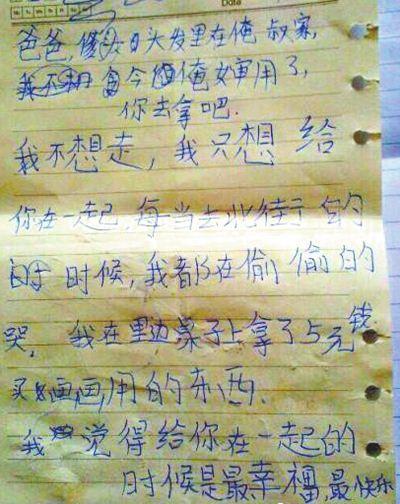 Date
爸爸, 头发里在俺 叔家,
今 俺婶用了,
你去拿吧.
我不想走, 我只想 给
你在一起, 每当去北街 的
时候, 我都在偷 偷的
哭, 我在里边桌子上拿了5元钱
买画画用的东西.
我 觉得给你在一起的
时候是最幸福,最快乐